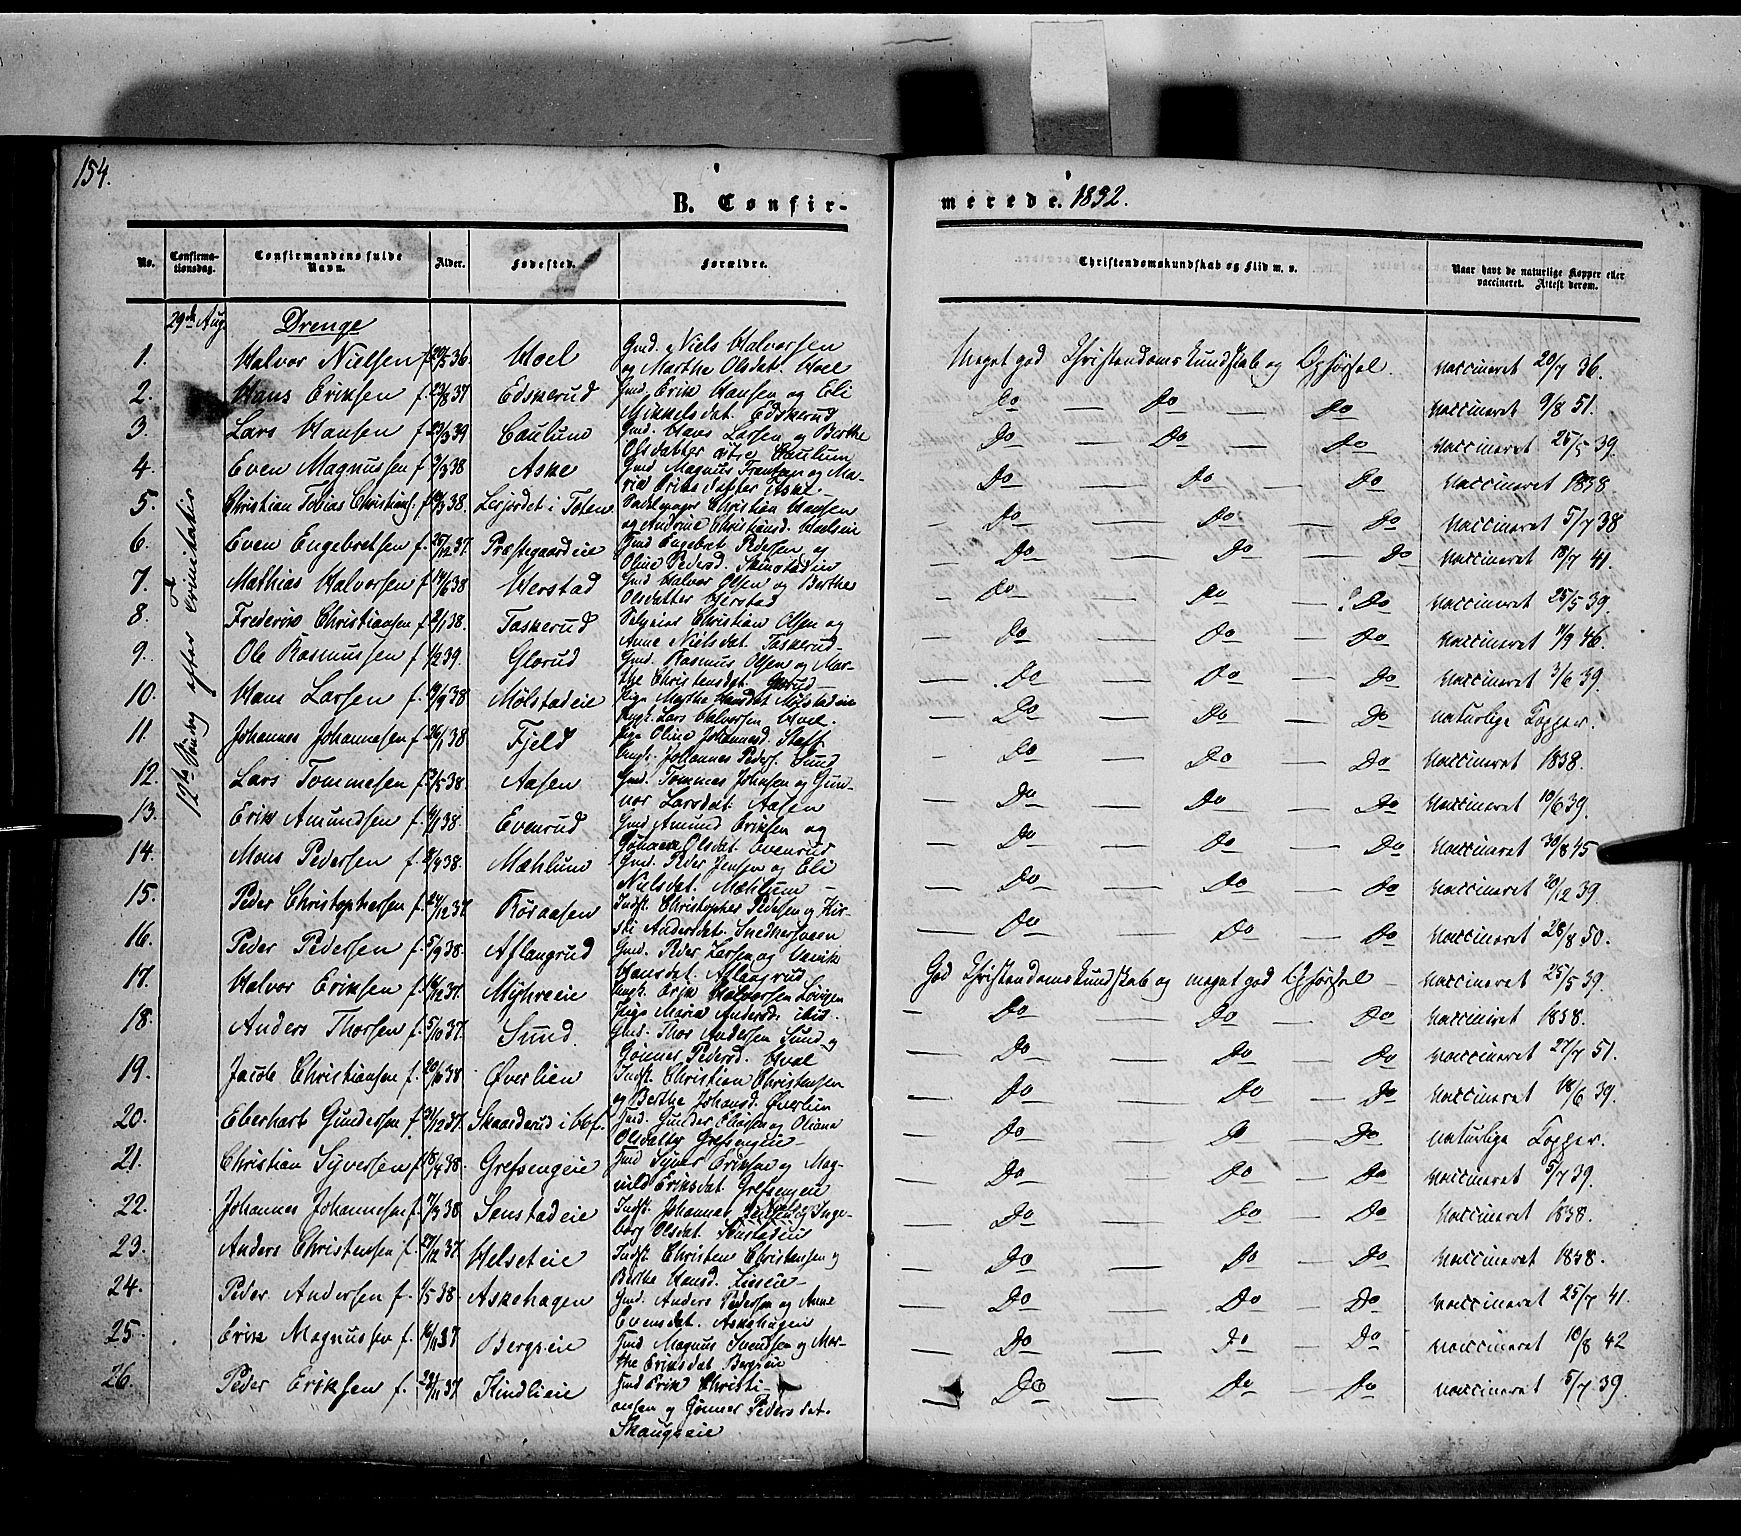 154.
B. Confir-
merede. 1852.
No.
Confirma-
tionsdag.
Confirmandens fulde
Navn.
Alder.
Fødested.
Forældre.
Christendomskundskab og Flid m. v.
Naar havt de naturlige Kopper eller
vaccineret. Attest derom.
29de Aug.
12te Søndag efter Trinitatis
Drenge
1. Halvor Nielsen f. 36 Hoel Gmd. Niels Halvorsen
og Marthe Olsdat. Hoel
Meget god Christendomskundskab og Opførsel. vaccineret 20/7 36.
2. Hans Eriksen f. 23/8 37 Edskerud Gmd. Erik Hansen og Eli
Mikkelsdat. Edskerud
Do — Do — Do vaccineret 9/8 51.
3. Lars Hansen f. 23/3 39 Caulum Gmd. Hans Larsen og Berthe
Olsdatter Caulum
Do — Do — Do vaccineret 25/5 39.
4. Even Magnussen f. 38 Aske Gmd. Magnus Frantsen og Ma-
rie Eriksdatter Aske.
Do — Do — Do vaccineret 1838
5. Christian Tobias Christians. f. 38. Lerjordet i Toten Christian Hansen
og Andrine Christiansd.
— Do — Do — Do vaccineret 5/7 38
6. Even Engebretsen f. 12 37. Præstegaardeie Gmd Engebret Pedersen og
Oline Pedersd.
— Do — Do — Do vaccineret 10/7 41.
7. Mathias Halvorsen f. 14/6 38 Herstad Gmd Halvor Olsen og Berthe
Olsdatter Herstad
— Do — Do — Do vaccineret 25/5 39.
8. Frederik Christiansen f. 38. Taskerud Selveier Christian Olsen og
Anne Nielsdat. Taskerud
— Do — Do — Do vaccineret 46.
9. Ole Rasmussen f. 1/2 39. Glorud Gmd. Rasmus Olsen og Mar-
the Christensdat. Glorud
— Do — Do — Do vaccineret 3/6 39.
10. Hans Larsen f. 38 Mølstadeie Pige Marthe Hansdat Mølstadeie
Ungk. Lars Halvorsen Hoel.
— Do — Do — Do naturlige Kopper.
11. Johannes Johannesen f. 26/1 38 Fjeld Pige Oline Johannesd.
Ungk. Johannes Peders. Sund
— Do — Do — Do vaccineret 1838.
12. Lars Tommesen f. 38. Aasen Gmd. Tommes Johnsen og Gun-
nor Larsdat. Aasen
— Do — Do — Do vaccineret 10/6 39.
13. Erik Amundsen f. 38. Evenrud Gmd Amund Eriksen og
Olsdat. Evenrud
— Do — Do — Do vaccineret 30/8 45
14. Mons Pedersen f. 38. Mæhlum Gmd. Peder Jensen og Eli
Nielsdat. Mæhlum —
— Do — Do — Do vaccineret 20/12 39.
15. Peder Christophersen f. 12 37. Røraasen Indst. Christopher Pedersen og Kir-
sti Andersdat.
— Do — Do — Do vaccineret 28/8 50.
16. Peder Pedersen f. 5/9 38. Aflangrud Gmd. Peder Larsen og
Hansdat. Aflangrud
God Christendomskundskab og meget god Opførsel — vaccineret 25/5 39.
17. Halvor Eriksen f. 12 37. Myhreeie Ungk. Erik Halvorsen
Pige Maria Andersd.
— Do — Do — Do vaccineret 1838.
18. Anders Thorsen f. 5/10 37. Sund Gmd. Thor Andersen Sund og
Gønner Pedersd. Hval
— Do — Do — Do vaccineret 27/7 51.
19. Jacob Christiansen f. 38 Øverlien Indst. Christian Christensen
og Berthe Johansd. Øverlien
— Do — Do — Do vaccineret 18/6 39.
20. Eberhart Gundersen f. 31/12 37. Skaarderud i Gunder Eliassen og Oliane
Olsdatter Grefsengeie —
— Do — Do — Do naturlige Kopper.
21. Christian Syversen f. 18/4 38. Grefsengeie Gmd Syver Eriksen og Mag-
nild Eriksdat. Grefsengeie
— Do — Do — Do vaccineret 5/7 39.
22. Johannes Johannesen f. 38 Senstadeie Indst. Johannes Inge-
borg Olsdat.
— Do — Do — Do vaccineret 1838.
23. Anders Christensen f. 12 37. Helseteie Indst. Christen Christensen og
Berthe Hansd.
— Do — Do — Do vaccineret 1838.
24. Peder Andersen f. 1/5 38. Askehagen Gmd. Anders Pedersen og Anne
Evensdat. Askehagen
— Do — Do — Do vaccineret 25/7 41.
25. Erik Magnussen f. 16/11 37. Bergseie Gmd Magnus Svendsen og Mar-
the Eriksdat Bergseie
— Do — Do — Do vaccineret 10/8 42
26. Peder Eriksen f. 11 37. Kindlieie Gmd Erik Christi-
ansen og Gønner Pedersdat.
Skaugseie
— Do — Do — Do vaccineret 5/7 39.